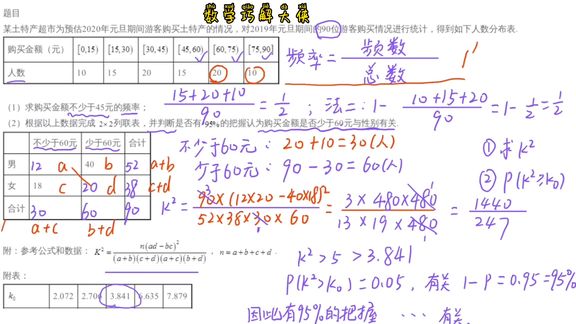 数学巧解大侠
题目
某土特产超市为预估2020年元旦期间游客购买土特产的情况，对2019年元旦期间的90位游客购买情况进行统计，得到如下人数分布表.
购买金额（元） [0,15) [15,30) [30,45) [45,60) [60,75) [75,90]
人数 10 15 20 15 20 10
频率 = 频数/总数
（1）求购买金额不少于45元的频率；
(15+20+10)/90 = 1/2 ; 法二: 1- (10+15+20)/90 = 1- 1/2 = 1/2
（2）根据以上数据完成 2×2列联表，并判断是否有 95%的把握认为购买金额是否少于60元与性别有关.
不少于60元 少于60元 合计
男 12 a 40 b 52 a+b
女 18 c 20 d 38 c+d
合计 30 60 90
a+c b+d
不少于60元: 20+10=30(人)
少于60元: 90-30=60(人)
① 求K²
② P(K²≥k₀)
K² = 90×(12×20-40×18)²/(52×38×30×60) = (3×480×480)/(13×19×480) = 1440/247
附：参考公式和数据： K² = n(ad-bc)²/((a+b)(c+d)(a+c)(b+d)) ， n=a+b+c+d .
附表：
k₀ 2.072 2.706 3.841 6.635 7.879
K²>5>3.841
P(K²>k₀)=0.05, 有关 1-P=0.95=95%
因此有95%的把握 ⋯ 有关.